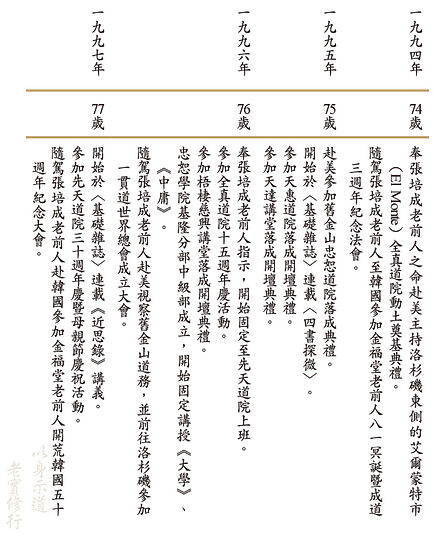 一九九四年 74歲 奉張培成老前人之命赴美主持洛杉磯東側的艾爾蒙特市
（El Monte）全真道院動土奠基典禮。
隨駕張培成老前人至韓國參加金福堂老前人八一冥誕暨成道
三週年紀念法會。
一九九五年 75歲 赴美參加舊金山忠恕道院落成典禮。
開始於〈基礎雜誌〉連載〈四書探微〉。
參加天惠道院落成開壇典禮。
參加天達講堂落成開壇典禮。
一九九六年 76歲 奉張培成老前人指示，開始固定至先天道院上班。
參加全真道院十五週年慶活動。
參加梧棲慈興講堂落成開壇典禮。
忠恕學院基隆分部中級部成立，開始固定講授《大學》、
《中庸》。
隨駕張培成老前人赴美視察舊金山道務，並前往洛杉磯參加
一貫道世界總會成立大會。
一九九七年 77歲 開始於〈基礎雜誌〉連載《近思錄》講義。
參加先天道院三十週年慶暨母親節慶祝活動。
隨駕張培成老前人赴韓國參加金福堂老前人開荒韓國五十
週年紀念大會。
以身示道
老實修行